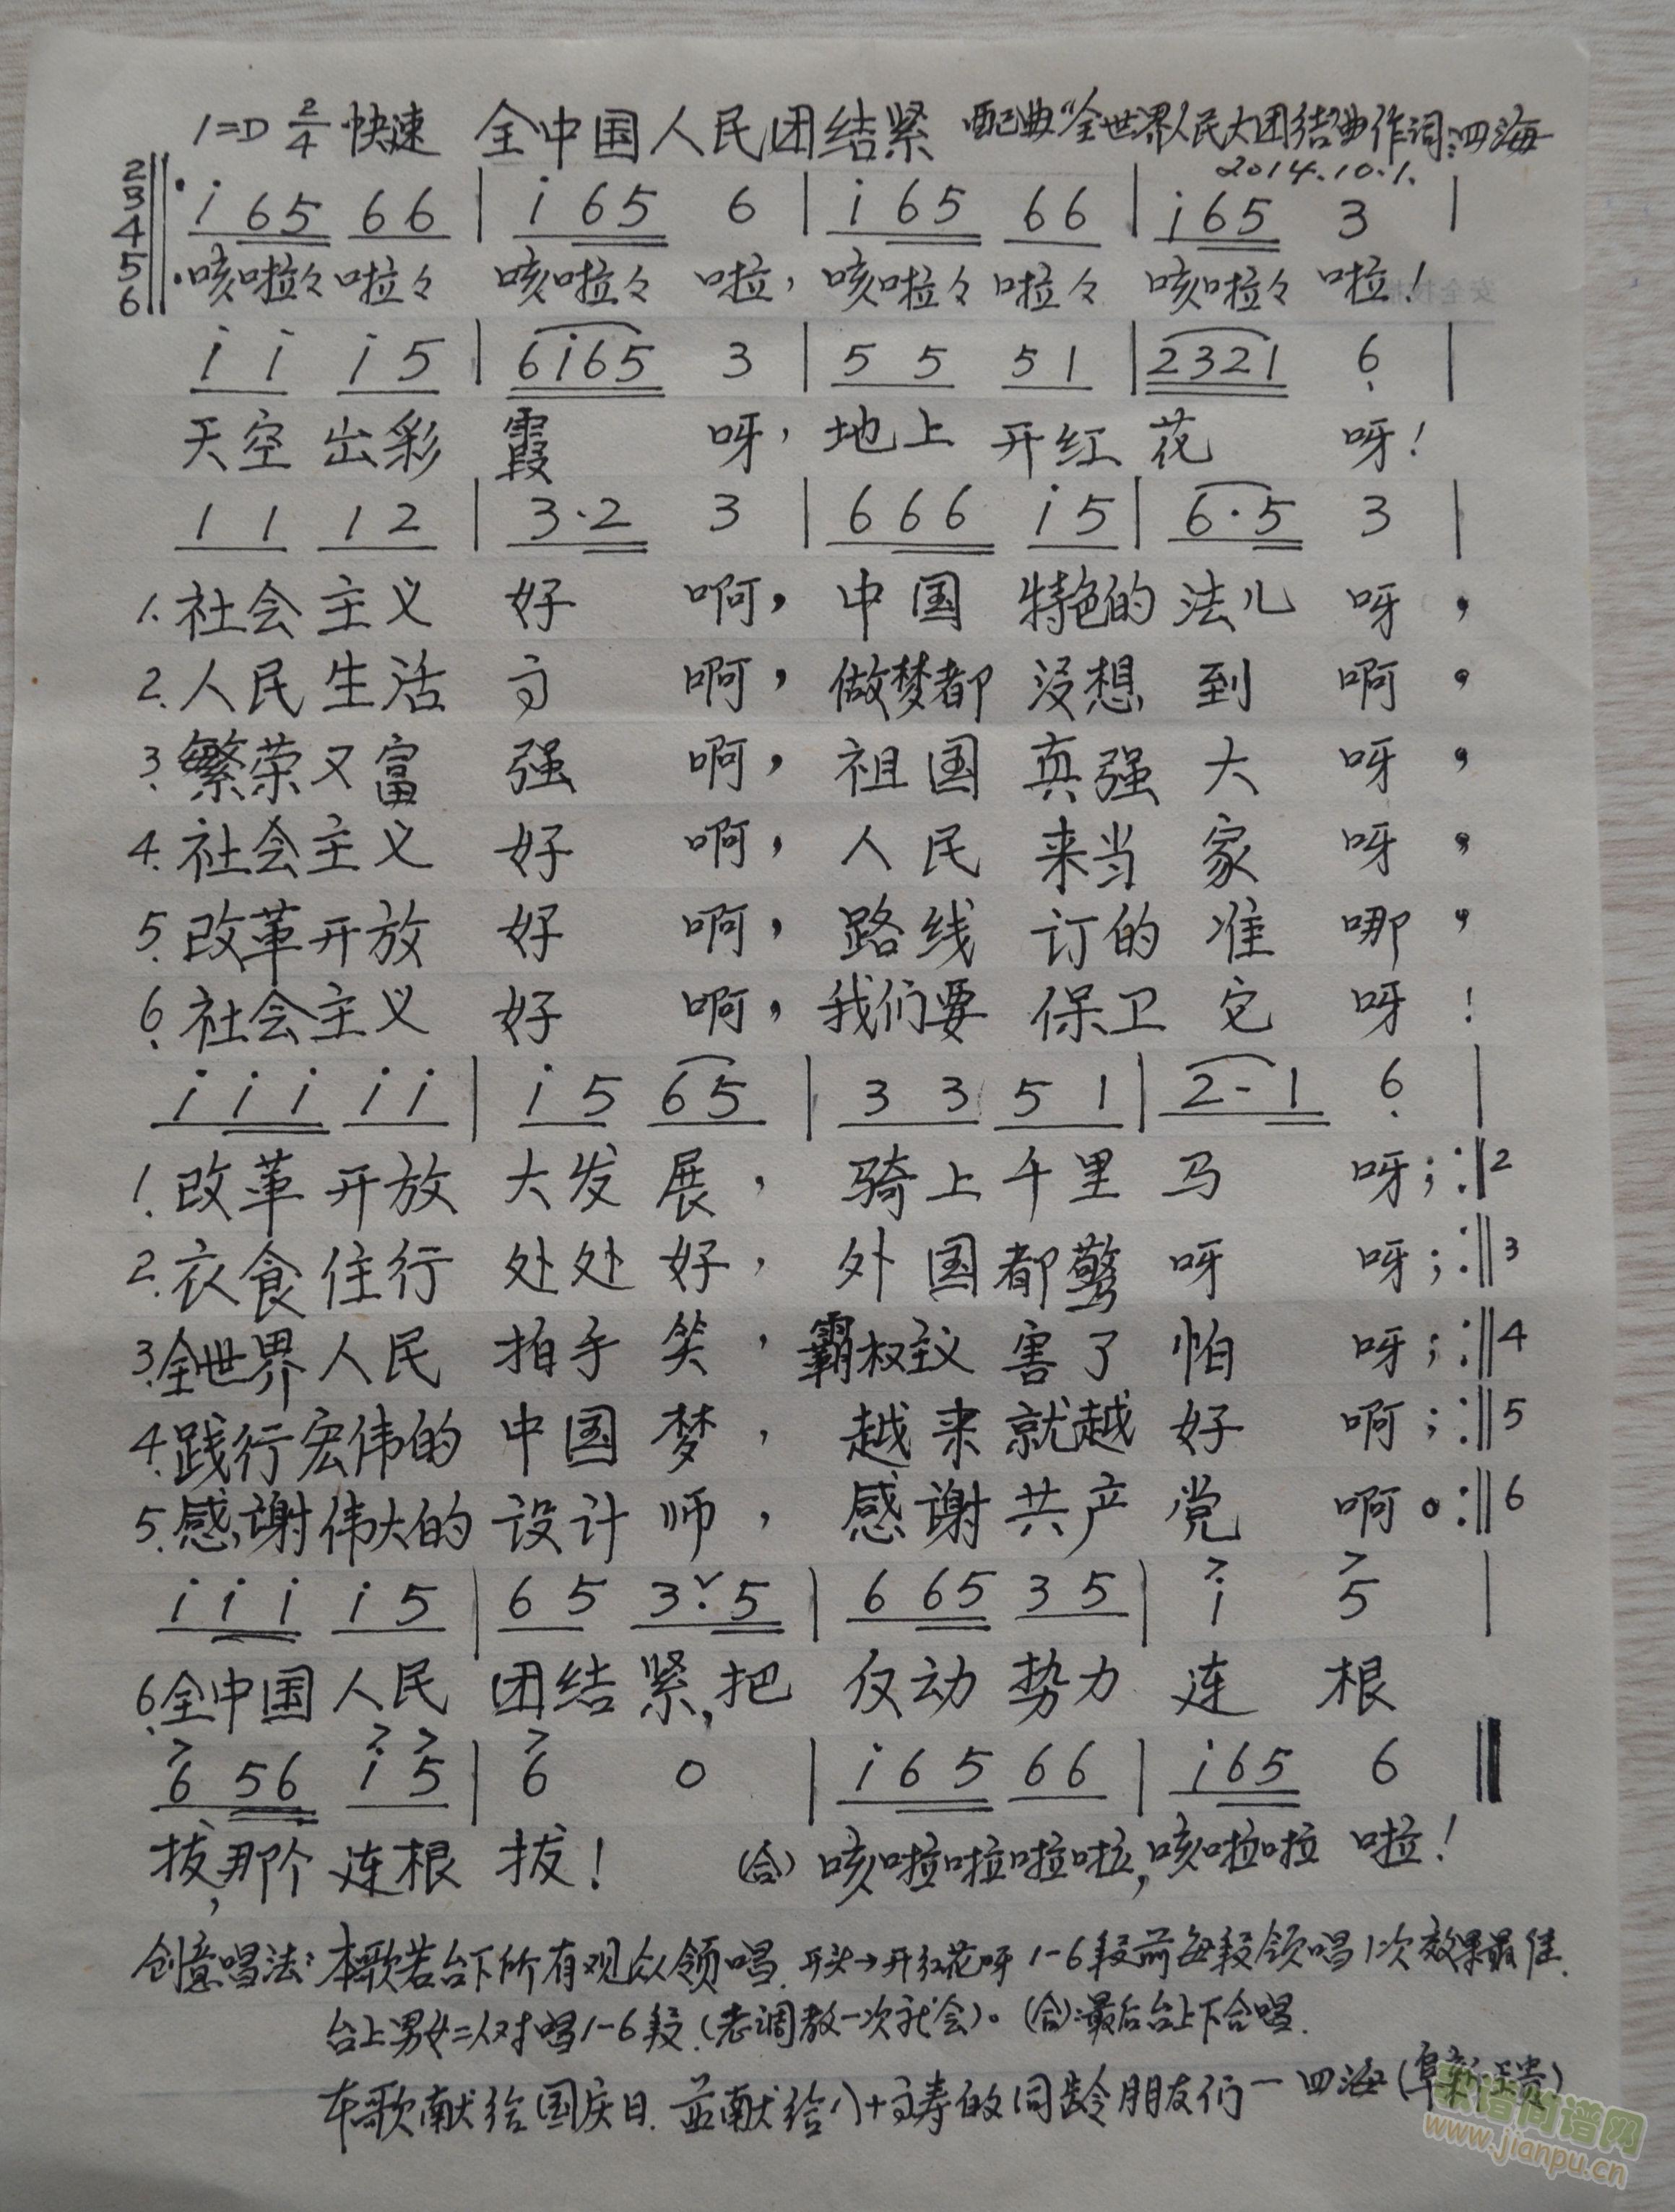 1=D 2/4 快速 全中国人民团结紧 配曲“全世界人民大团结”曲 作词:四海
2014.10.1.
2 3 4 5 6
i 65 66 | i 65 6 | i 65 66 | i 65 3 |
咳啦々啦々 咳啦々 啦，咳啦々 啦々 咳啦々 啦！
i i i 5 | 6i65 3 | 5 5 5 1 | 2321 6 |
天空出彩 霞 呀，地上 开红 花 呀！
1 1 1 2 | 3·2 3 | 6 6 6 i 5 | 6·5 3 |
1.社会主义 好 啊，中国 特色的 法儿 呀，
2.人民生活 方 啊，做梦都 没想 到 啊，
3.繁荣又富 强 啊，祖国 真强 大 呀，
4.社会主义 好 啊，人民 来当 家 呀，
5.改革开放 好 啊，路线 订的 准 哪，
6.社会主义 好 啊，我们要 保卫 它 呀！
i i i i i | i 5 6 5 | 3 3 5 1 | 2-1 6 |
1.改革开放 大发展，骑上千里马 呀；:‖2
2.衣食住行 处处好，外国都惊呀 呀；:‖3
3.全世界人民 拍手笑，霸权主义害了怕 呀；:‖4
4.践行宏伟的 中国梦，越来就越好 啊；:‖5
5.感谢伟大的 设计师，感谢共产党 啊。:‖6
i i i i 5 | 6 5 3·5 | 6 65 3 5 | i 5 |
6.全中国人民 团结紧，把 仮动 势力 连 根
6 56 i 5 | 6 0 | i 6 5 66 | i 65 6 ‖
拔，那个 连根 拔！ (合) 咳啦啦啦啦，咳啦啦 啦！
创意唱法：本歌若台下所有观众领唱.开头→开红花呀 1-6段前每段领唱1次效果最佳.
台上男女二人对唱1-6段.(老调教一次就会)。(合):最后台上下合唱.
本歌献给国庆日.並献给八十方寿的同龄朋友们—四海(阜新王贵)
简谱网
www.jianpu.cn